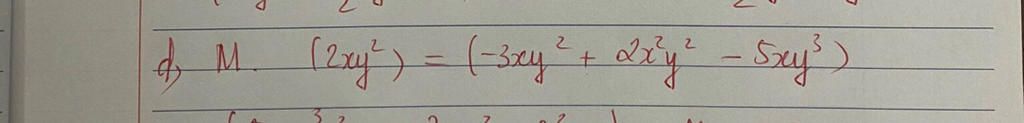 d) M. (2xy²) = (-3xy² + 2x²y² - 5xy³)